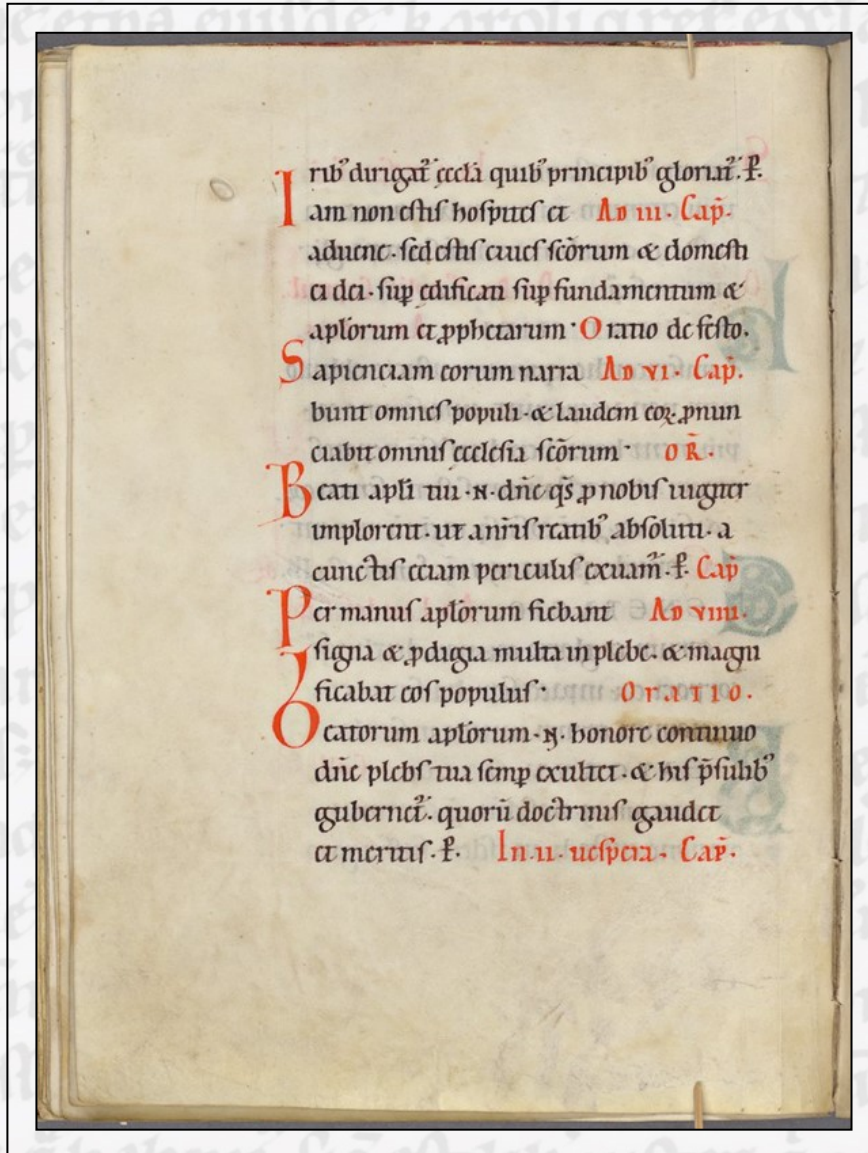 ribꝰ dirigat᷑ eccla̅ quibꝰ principibꝰ gloriat᷑. P̱.
Iam non estis hospites et Ad iii. Cap̅.
aduene. sed estis ciues sc̅orum & domesti
ci dei. suꝑ edificati suꝑ fundamentum &
apl̅orum et ꝓphetarum. Oratio de festo.
Sapienciam eorum narra Ad vi. Cap̅.
bunt omnes populi. & laudem eoꝝ ꝓnun
ciabit omnis ecclesia sc̅orum. OR̅.
Beati apl̅i tui .N. dn̅e qs̅ ꝓ nobis iugiter
implorent. ut an̅r̅is reatibꝰ absoluti. a
cunctis eciam periculis exuam᷑. P̱. Cap̅
Per manus apl̅orum fiebant Ad viiii.
signa & ꝓdigia multa in plebe. & magni
ficabat eos populus. Oratio.
Beatorum apl̅orum .N. honore continuo
dn̅e plebs tua semꝑ exultet. & his p̅sulibꝰ
gubernet᷑. quoru̅ doctrinis gaudet
et meritis. P̱. In .ii. uespera. Cap̅.